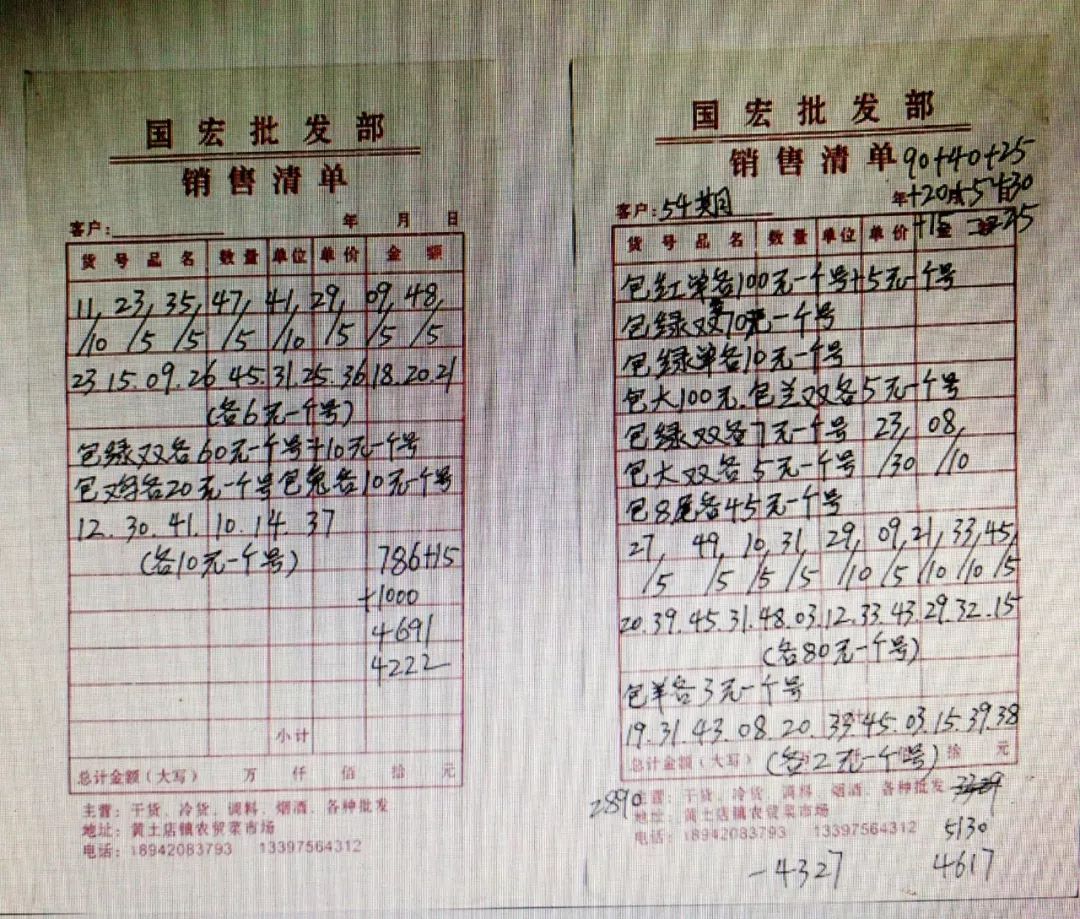 国宏批发部
销售清单
客户:
年 月 日
货号品名 数量 单位 单价 金额
11, 23, 35, 47, 41, 29, 09, 48,
/10 /5 /5 /5 /10 /5 /5 /5
23 15. 09. 26 45. 31. 25. 36 18. 20. 21
(各6元一个号)
包绿双各60元一个号+10元一个号
包鸡各20元一个号包兔各10元一个号
12. 30. 41. 10. 14. 37
(各10元一个号)
786+15
+1000
4691
4222
小计
总计金额(大写) 万 仟 佰 拾 元
主营: 干货、冷货、调料、烟酒、各种批发
地址: 黄土店镇农贸菜市场
电话: 18942083793 13397564312
国宏批发部
销售清单
90+40+25
客户: 54期
年+20
+15
货号品名 数量 单位 单价
包红单各100元一个号+5元一个号
包绿双各70元一个号
包绿单各10元一个号
包大100元.包兰双各5元一个号
包绿双各7元一个号 23, 08,
包大双各5元一个号 /30 /10
包8尾各45元一个号
27, 49, 10, 31, 29, 09, 21, 33, 45,
/5 /5 /5 /5 /10 /5 /10 /10 /5
20. 39. 45. 31. 48. 03. 12. 33. 43. 29. 32. 15
(各80元一个号)
包羊各3元一个号
19. 31. 43. 08. 20. 33. 45. 03. 15. 39. 38
(各2元一个号)
总计金额(大写) 拾 元
2890
主营: 干货、冷货、调料、烟酒、各种批发
地址: 黄土店镇农贸菜市场
电话: 18942083793 13397564312
5130
-4327 4617